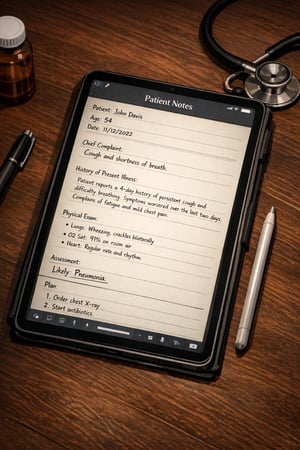 Patient Notes
Patient: John Davis
Age: 54
Date: 11/12/2022
Chief Complaint:
Cough and shortness of breath
History of Present Illness:
Patient reports a 4-day history of persistent cough and
difficulty breathing. Symptoms worsened over the last two days.
Complains of fatigue and mild chest pain.
Physical Exam:
• Lungs: Wheezing, crackles bilaterally
• O2 Sat: 91% on room air
• Heart: Regular rate and rhythm
Assessment:
Likely Pneumonia
Plan:
1. Order chest X-ray
2. Start antibiotics.